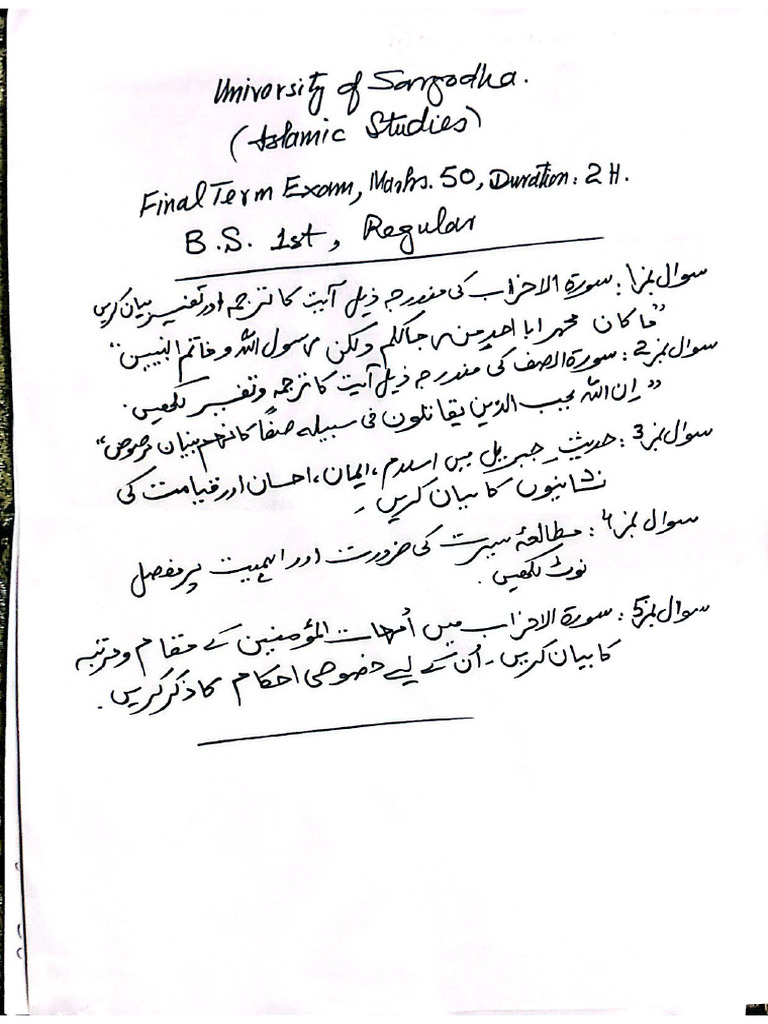 University of Sargodha.
(Islamic Studies)
Final Term Exam, Marks. 50, Duration: 2 H.
B.S. 1st, Regular
سوال نمبر 1: سورۃ الاحزاب کی مندرجہ ذیل آیت کا ترجمہ اور تفسیر بیان کریں
"ما کان محمد ابا احد من رجالکم ولکن رسول اللہ و خاتم النبیین"
سوال نمبر 2: سورۃ الصف کی مندرجہ ذیل آیت کا ترجمہ و تفسیر لکھیں.
"إن اللہ یحب الذین یقاتلون فی سبیلہ صفًا کانہم بنیان مرصوص"
سوال نمبر 3: حدیثِ جبریل میں اسلام، ایمان، احسان اور قیامت کی
نشانیوں کا بیان کریں۔
سوال نمبر 4: مطالعۂ سیرت کی ضرورت اور اہمیت پر مفصل
نوٹ لکھیں.
سوال نمبر 5: سورۃ الاحزاب میں اُمہات المؤمنین کے مقام و مرتبہ
کا بیان کریں۔ اُن کے لیے خصوصی احکام کا ذکر کریں.